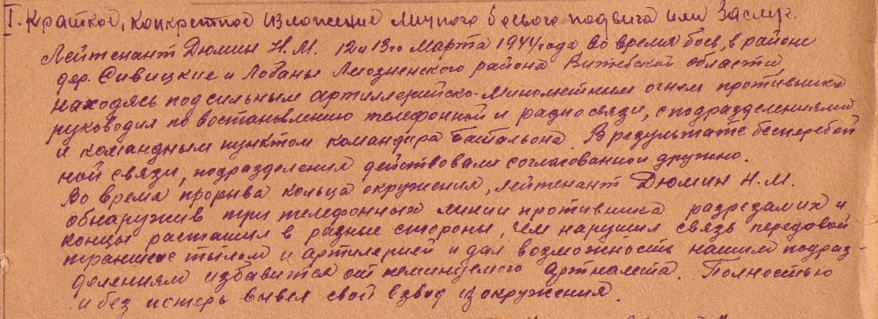 I. Краткое, конкретное изложение личного боевого подвига или заслуг.
Лейтенант Дюмин Н.М. 12 и 13го марта 1944 года во время боев, в районе
дер. Сивицкие и Лобаны Лиозненского района Витебской области
находясь под сильным артиллерийско-минометным огнем противника
руководил по востановлению телефонной и радиосвязи, с подразделениями
и командным пунктом командира батальона. В результате бесперебой
ной связи, подразделения действовали согласованно и дружно.
Во время прорыва кольца окружения, лейтенант Дюмин Н.М.
обнаружив три телефонных линии противника разрезал их и
концы растащил в разные стороны, чем нарушил связь передовой
траншеи с тылом и артилерией и дал возможность нашим подраз-
делениям избавится от неминуемого артналета. Полностью
и без потерь вывел свой взвод из окружения.